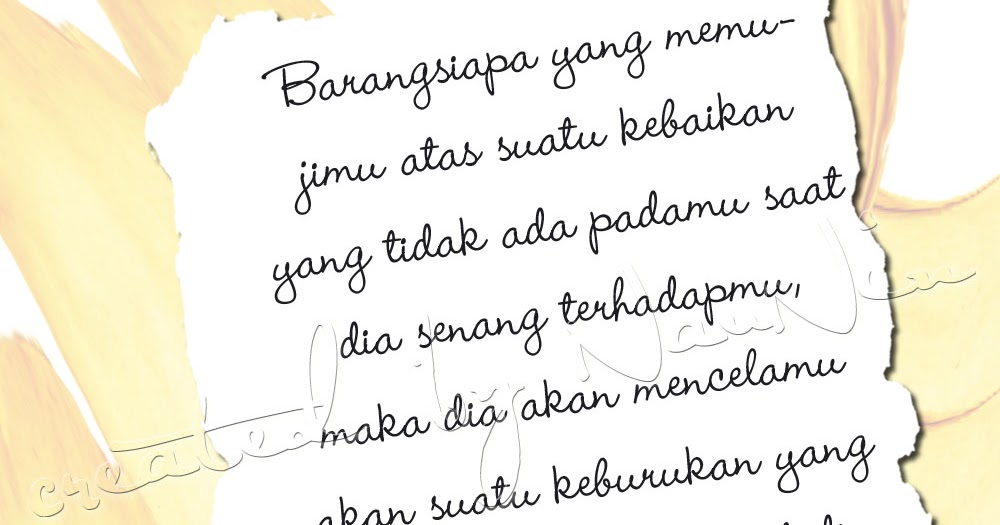 Barangsiapa yang memu-
jimu atas suatu kebaikan
yang tidak ada padamu saat
dia senang terhadapmu,
maka dia akan mencelamu
akan suatu keburukan yang
created by NaiNai